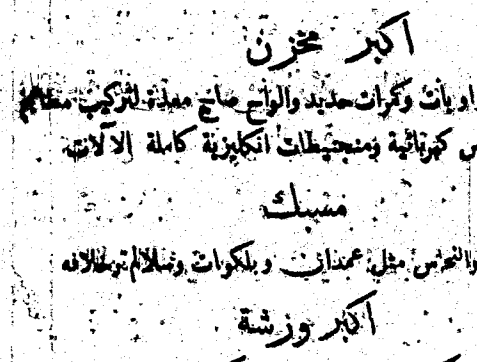 اكبر مخزن
اويات وكمرات حديد والواح صاج معدة لتركيب
كهربائية ومنجنيطات انكليزية كاملة الآلات
مسبك
والنحاس مثل عمدان وبلكونات وسلالم وخلافه
اكبر ورشة